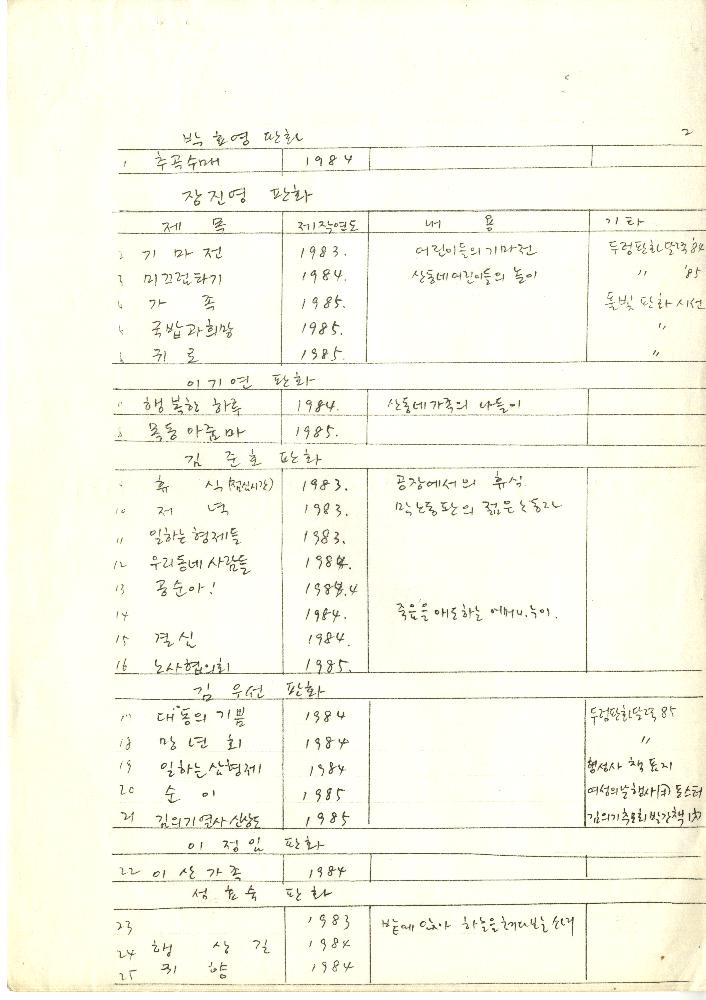 박효영 판화 2
1 추곡수매 1984
장진영 판화
제 목 제작연도 내 용 기타
2 기마전 1983. 어린이들의 기마전 두렁판화달력 '84
3 미끄럼타기 1984. 산동네 어린이들의 놀이 〃 '85
4 가 족 1985. 돌빛 판화시선
5 국밥과 희망 1985. 〃
6 귀 로 1985. 〃
이기연 판화
7 행복한 하루 1984. 산동네가족의 나들이
8 목동 아줌마 1985.
김 준호 판화
9 휴 식 (점심시간) 1983. 공장에서의 휴식
10 저 녁 1983. 막노동판의 젊은 노동자
11 일하는 형제들 1983.
12 우리동네 사람들 1984.
13 공순아! 1984
14 1984. 죽음을 애도하는 어머니, 누이.
15 결 신 1984.
16 노사협의회 1985.
김 우선 판화
17 대동의 기쁨 1984 두렁판화달력 85
18 망 년 회 1984 〃
19 일하는 삼형제 1984 형성사 책 표지
20 순 이 1985 여성의날 행사 포스터
21 김의기열사 신상도 1985 김의기추모회 발간책
이 정임 판화
22 이산가족 1984
성 효숙 판화
23 1983 밭에 앉아 하늘을 쳐다보는 소녀
24 행 상 길 1984
25 귀 향 1984